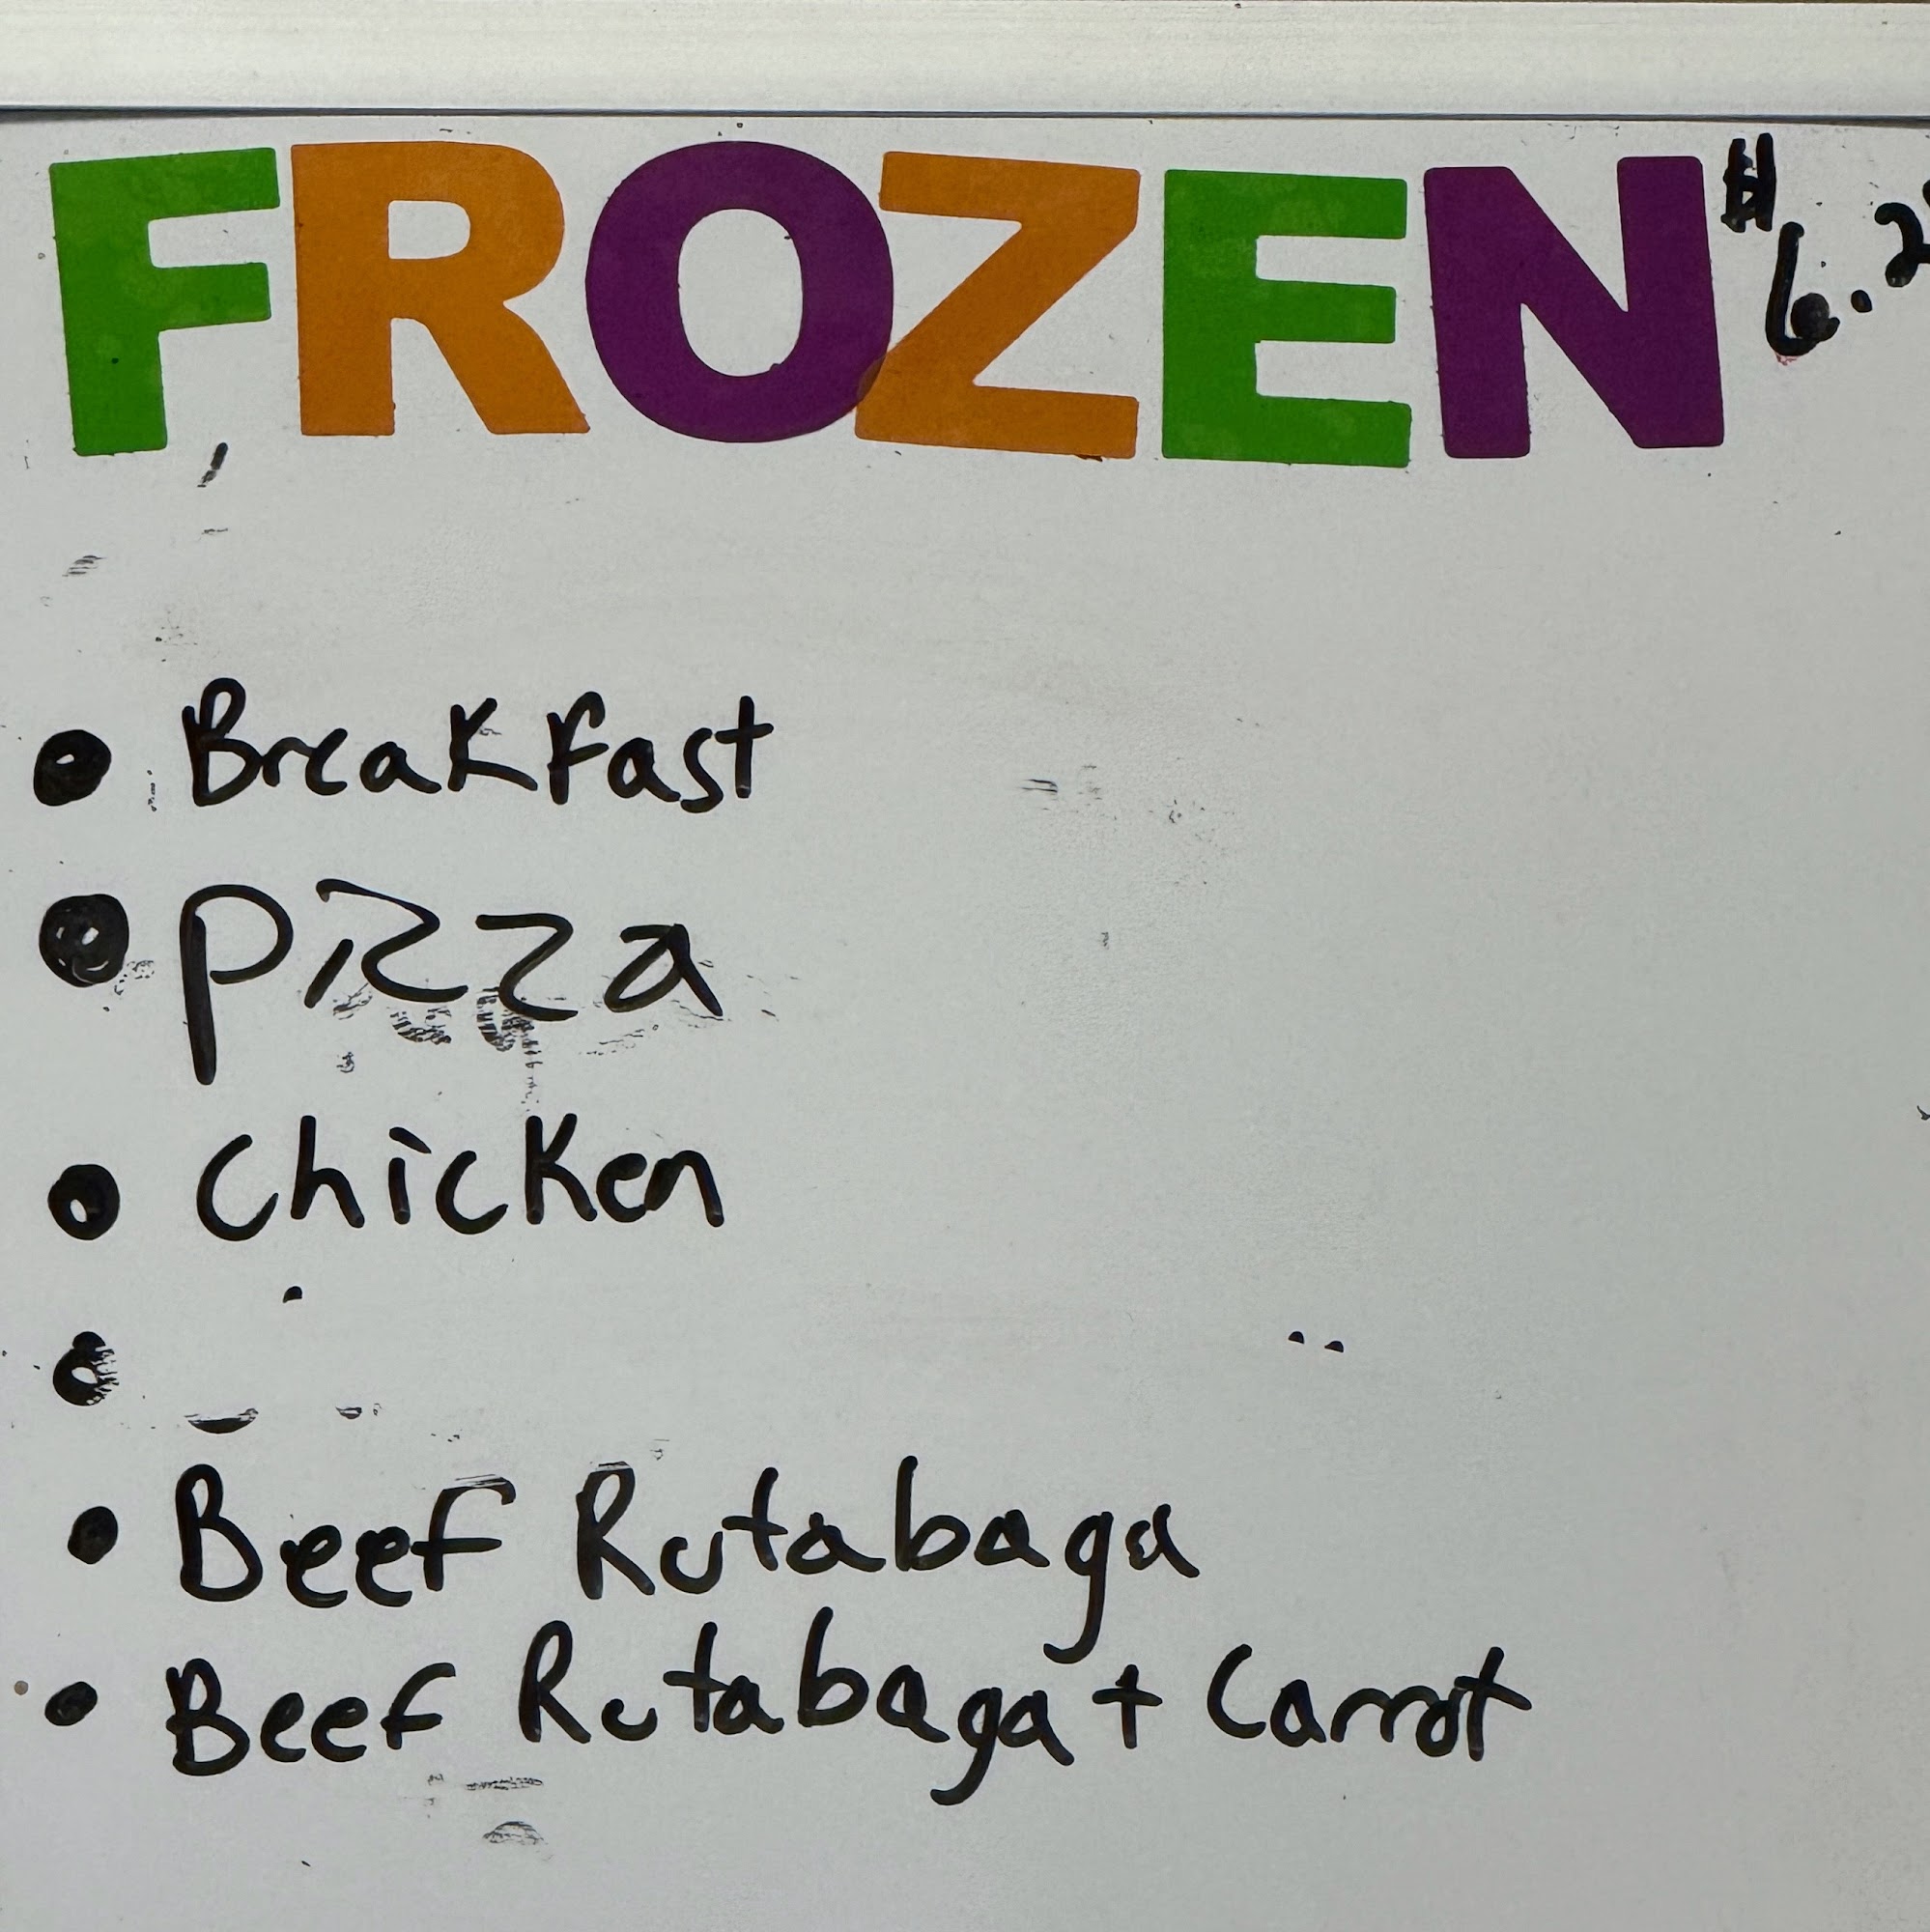 FROZEN
• Breakfast
• Pizza
• Chicken
•
• Beef Rutabaga
• Beef Rutabaga + Carrot